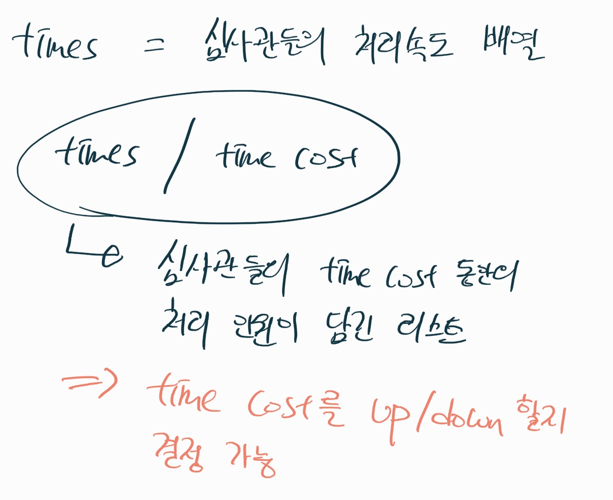 times = 심사관들의 처리속도 배열
times / time cost
심사관들의 time cost 동안의
처리 인원이 담긴 리스트
=> time cost를 up/down 할지
결정 가능